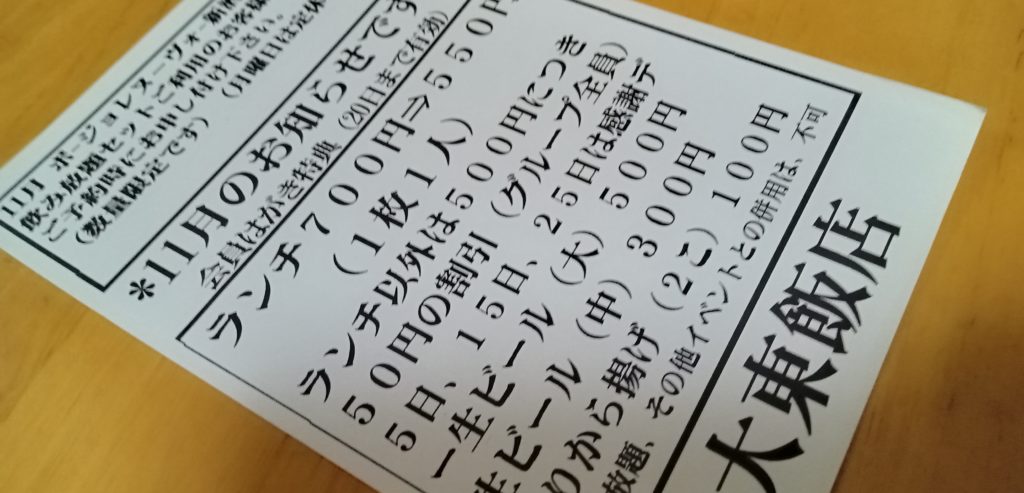 11月 ボージョレヌーヴォー新酒
飲み放題セットご利用のお客様
ご予約時にお申し付け下さい。
(数量限定です) (月曜日は定休
*11月のお知らせです
会員はがき特典 (20日まで有効)
ランチ700円⇒550円
(1枚1人)
ランチ以外は500円につき
50円の割引 (グループ全員)
5日、15日、25日は感謝デ
ー生ビール (大) 500円
生ビール (中) 300円
りから揚げ (2こ) 100円
放題、その他イベントとの併用は、不可
大東飯店